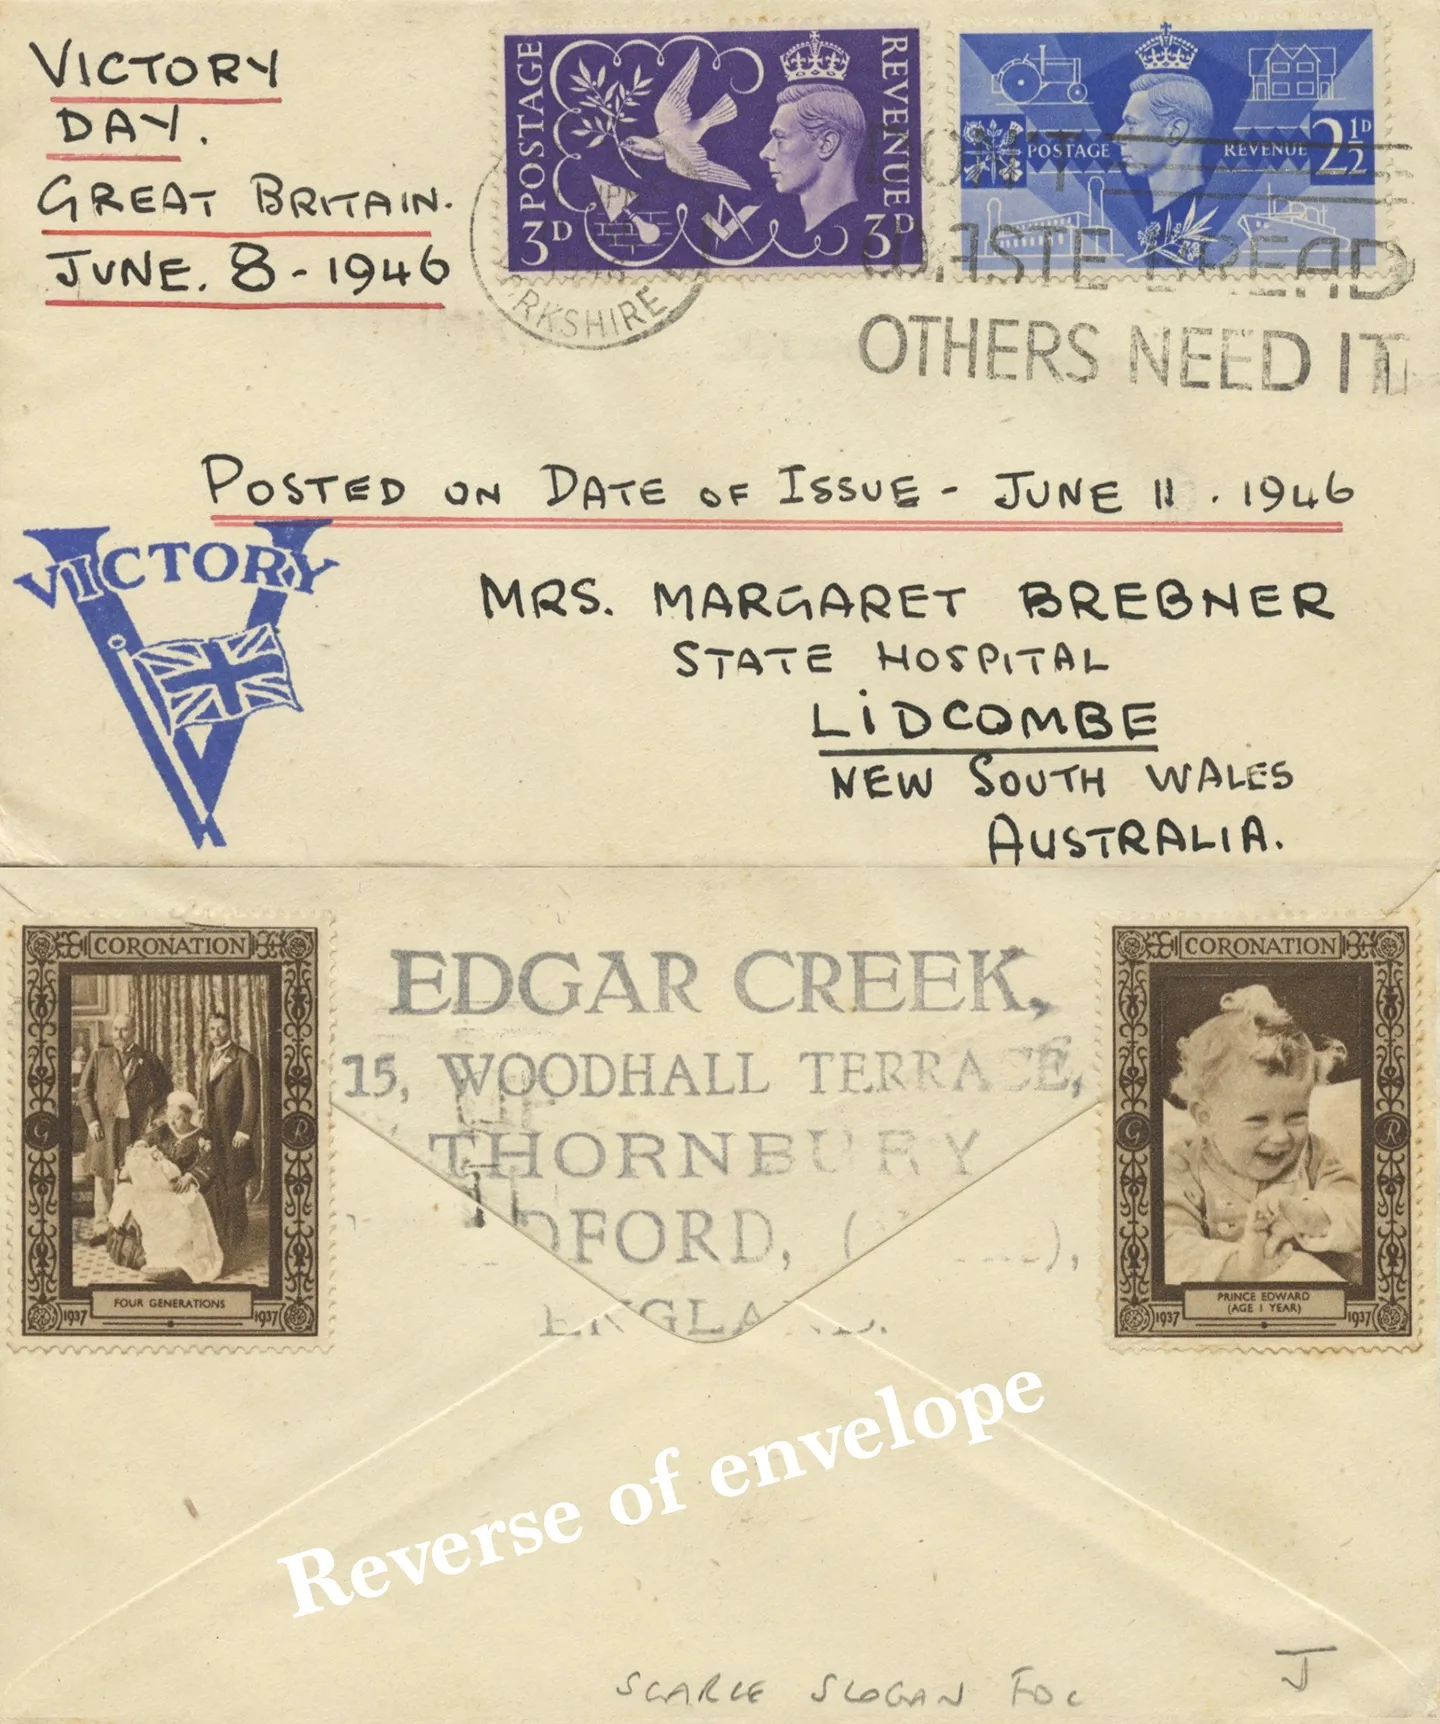 VICTORY
DAY.
GREAT BRITAIN.
JUNE. 8 - 1946
POSTAGE
REVENUE
3D
3D
POSTAGE
REVENUE
2½D
RKSHIRE
DON'T
WASTE BREAD
OTHERS NEED IT
POSTED ON DATE OF ISSUE - JUNE 11. 1946
VICTORY
MRS. MARGARET BREBNER
STATE HOSPITAL
LIDCOMBE
NEW SOUTH WALES
AUSTRALIA.
CORONATION
G R
FOUR GENERATIONS
1937 1937
EDGAR CREEK,
15, WOODHALL TERRACE,
THORNBURY
DFORD,
ENGLAND.
CORONATION
G R
PRINCE EDWARD
(AGE 1 YEAR)
1937 1937
Reverse of envelope
SCARCE SLOGAN FDC
J